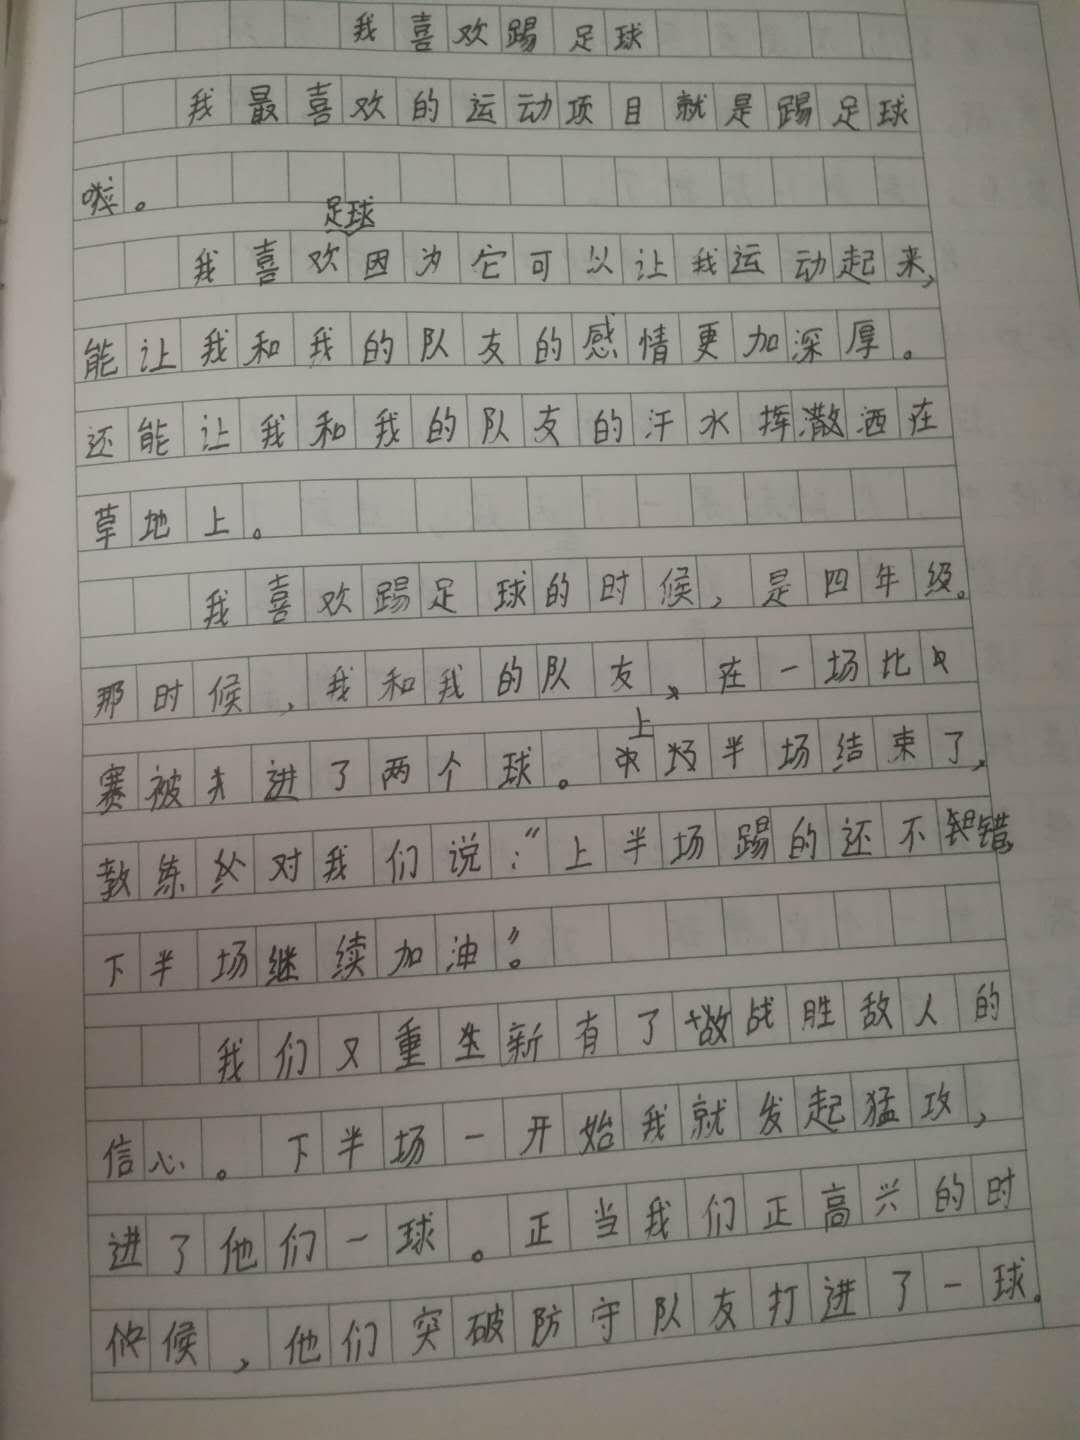 我喜欢踢足球
我最喜欢的运动项目就是踢足球
啦。
足球
我喜欢因为它可以让我运动起来,
能让我和我的队友的感情更加深厚。
还能让我和我的队友的汗水挥潵洒在
草地上。
我喜欢踢足球的时候,是四年级。
那时候,我和我的队友、在一场比
上
赛被进了两个球。半场结束了,
教练对我们说:“上半场踢的还不错,
下半场继续加油”。
我们又重新有了战胜敌人的
信心。下半场一开始我就发起猛攻,
进了他们一球。正当我们正高兴的时
候,他们突破防守队友打进了一球。